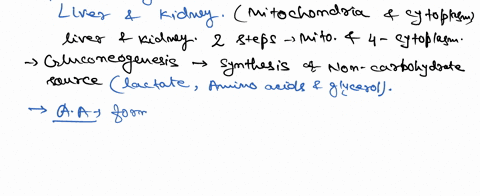 Liver & Kidney. (Mitochondria & cytoplasm)
liver & kidney. 2 steps → Mito. & 4 - cytoplasm.
→ Gluconeogenesis → Synthesis of Non-carbohydrate
source (lactate, Amino acids & glycerol).
→ A.A → form